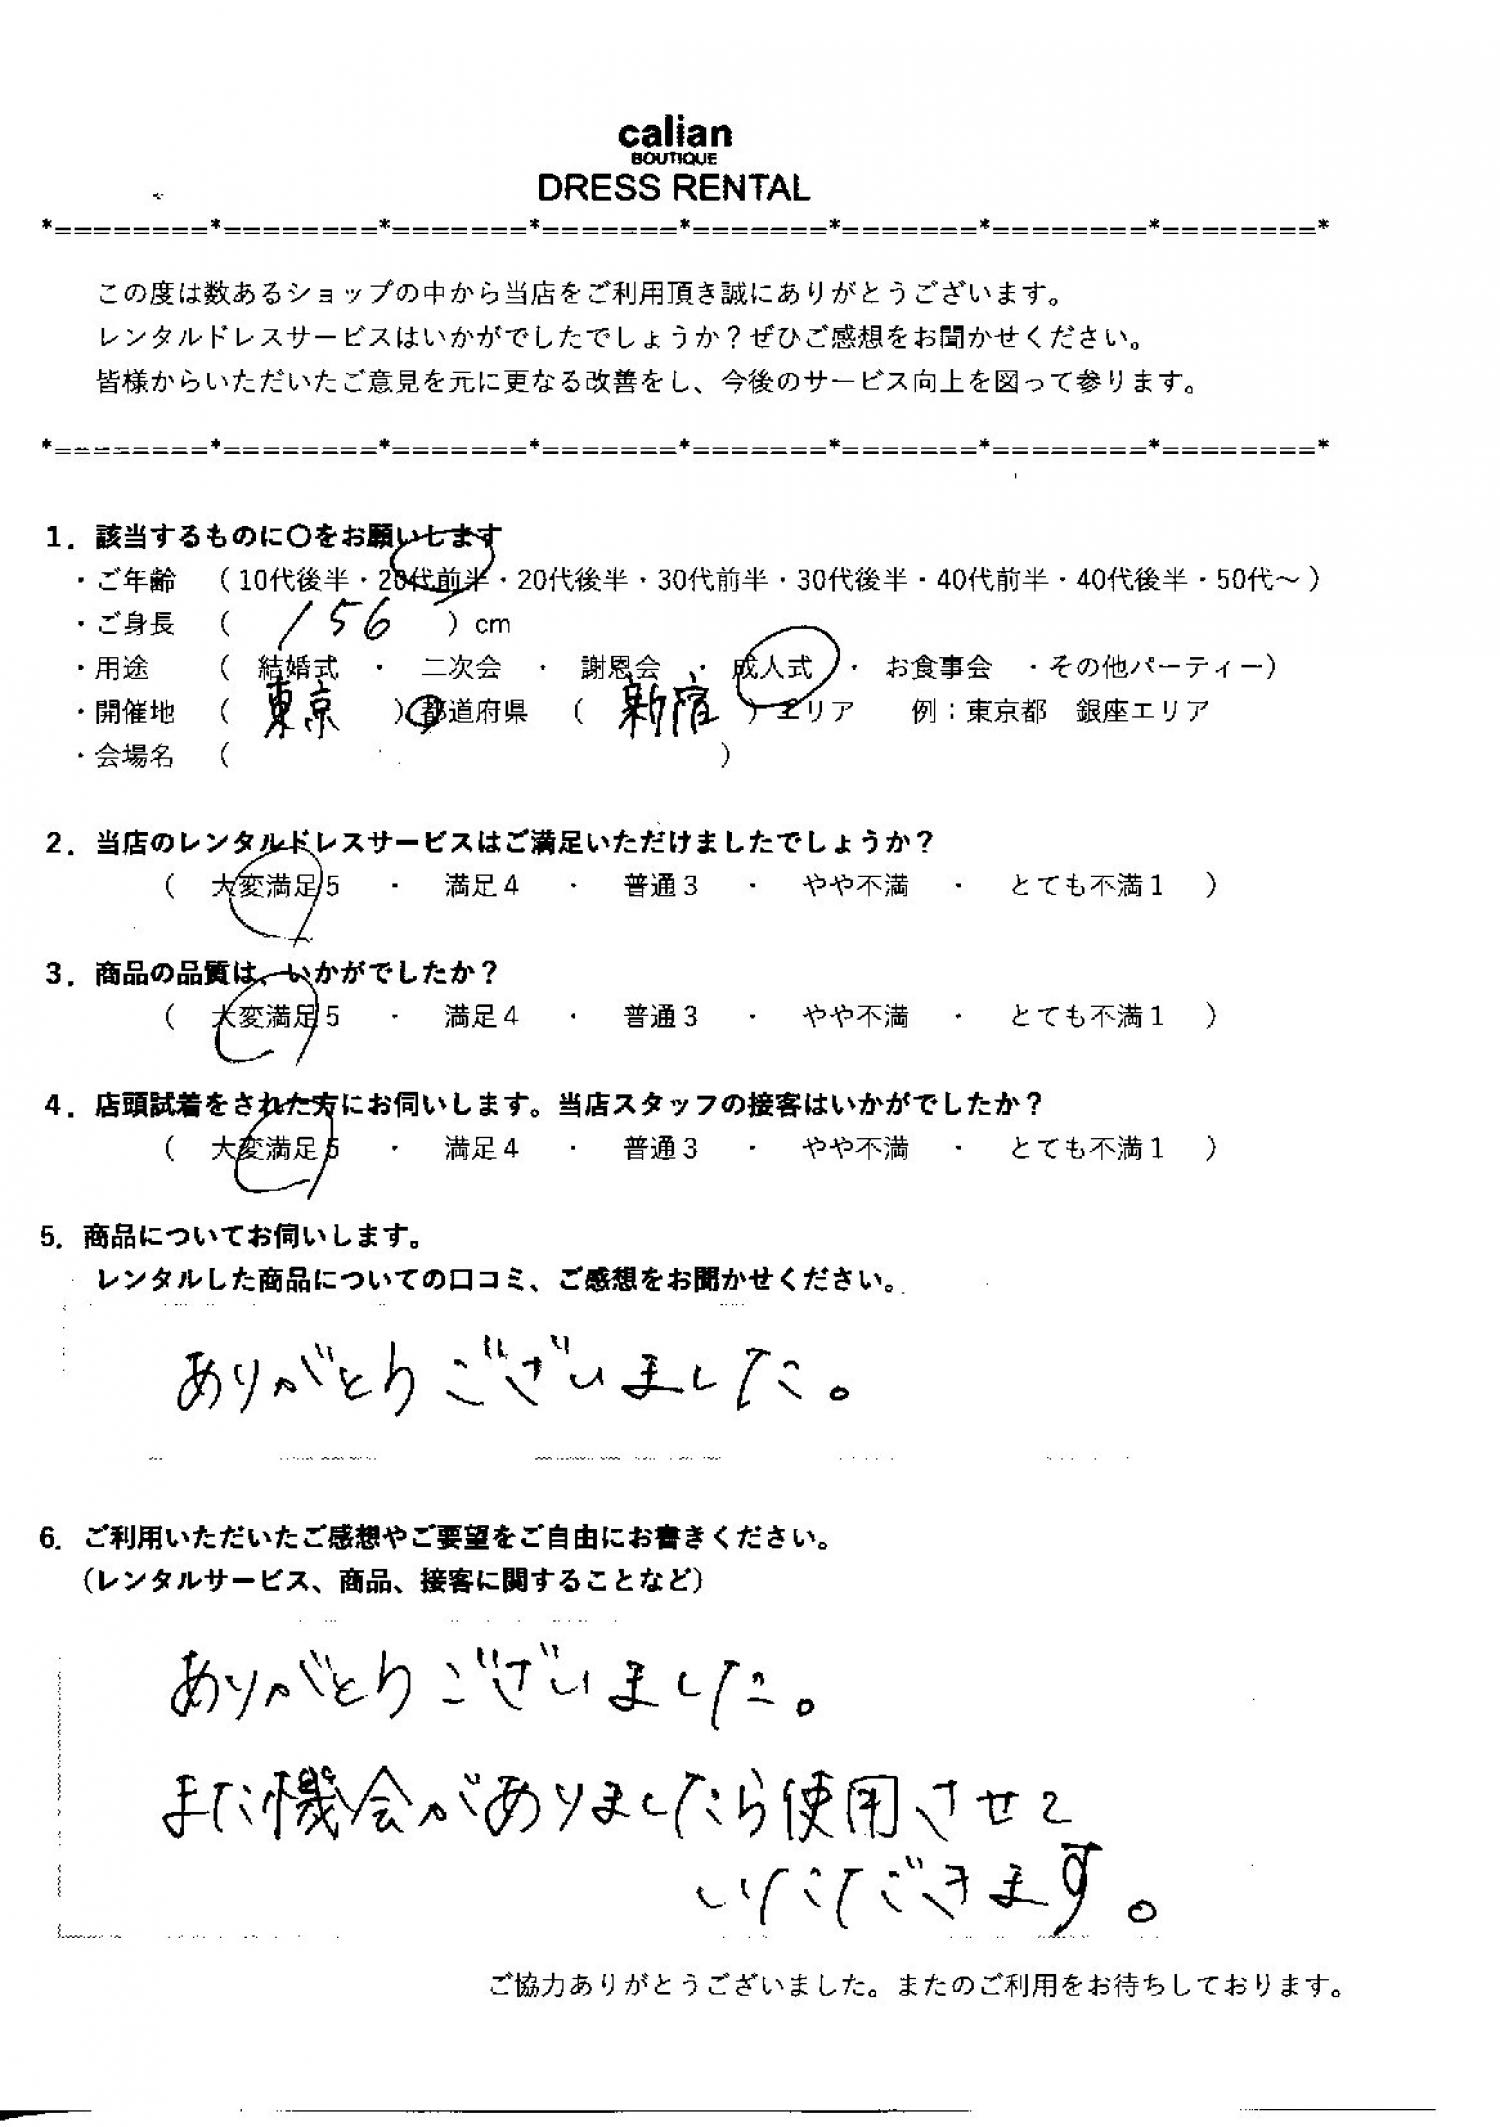 calian
BOUTIQUE
DRESS RENTAL
*========*========*=======*=======*=======*=======*========*========*
この度は数あるショップの中から当店をご利用頂き誠にありがとうございます。
レンタルドレスサービスはいかがでしたでしょうか？ぜひご感想をお聞かせください。
皆様からいただいたご意見を元に更なる改善をし、今後のサービス向上を図って参ります。
*========*========*=======*=======*=======*=======*========*========*
1．該当するものに〇をお願いします
・ご年齢　（ 10代後半・20代前半・20代後半・30代前半・30代後半・40代前半・40代後半・50代～ ）
・ご身長　（　156　）cm
・用途　（　結婚式　・　二次会　・　謝恩会　・　成人式　・　お食事会　・その他パーティー）
・開催地　（　東京　）都道府県　（　新宿　）エリア　例：東京都　銀座エリア
・会場名　（　　　　）
2．当店のレンタルドレスサービスはご満足いただけましたでしょうか？
（　大変満足5　・　満足4　・　普通3　・　やや不満　・　とても不満1　）
3．商品の品質は、いかがでしたか？
（　大変満足5　・　満足4　・　普通3　・　やや不満　・　とても不満1　）
4．店頭試着をされた方にお伺いします。当店スタッフの接客はいかがでしたか？
（　大変満足5　・　満足4　・　普通3　・　やや不満　・　とても不満1　）
5．商品についてお伺いします。
レンタルした商品についての口コミ、ご感想をお聞かせください。
ありがとうございました。
6．ご利用いただいたご感想やご要望をご自由にお書きください。
（レンタルサービス、商品、接客に関することなど）
ありがとうございました。
また機会がありましたら使用させて
いただきます。
ご協力ありがとうございました。またのご利用をお待ちしております。